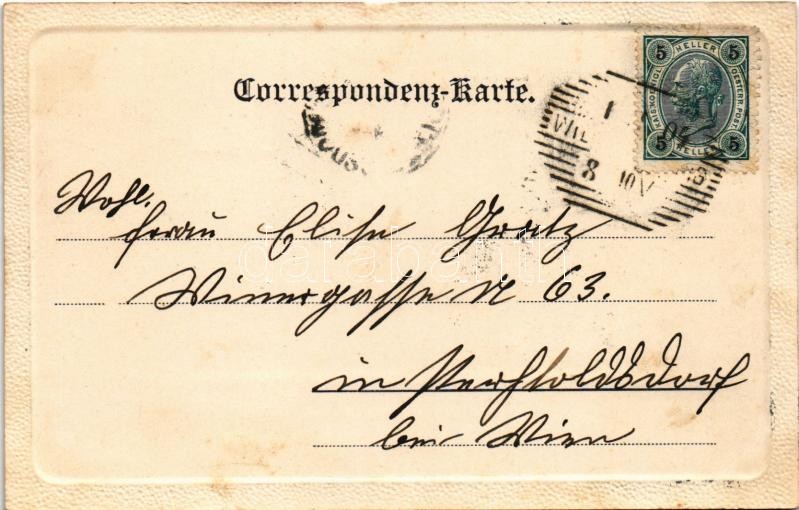 Correspondenz-Karte.
5 HELLER 5
KAIS. KÖNIGL. OESTERR. POST.
5 HELLER 5
WIE
8 10V
Wohl.
Frau Elise Gratz
Winergasse N 63.
in Perchtoldsdorf
bei Wien
darabanth